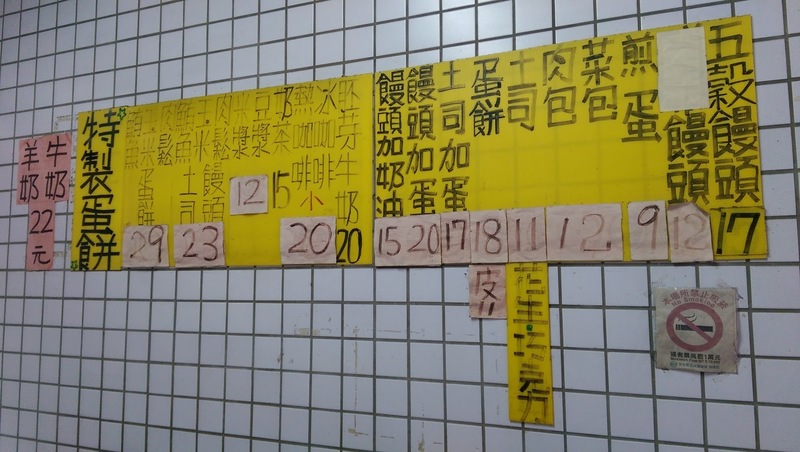 五穀饅頭
17
饅頭
12
煎蛋
9
菜包
肉包
12
土司
11
蛋餅
18
土司加蛋
17
饅頭加蛋
20
饅頭加奶油
15
胚芽牛奶
20
冰咖啡小
熱咖啡
20
奶茶
15
豆漿
米漿
12
肉鬆
玉米
鮪魚
饅頭
土司
23
肉鬆
玉米
鮪魚
蛋餅
29
特製蛋餅
牛奶
羊奶
22元
皮11
花生巧克力
本場所禁止吸菸
No Smoking